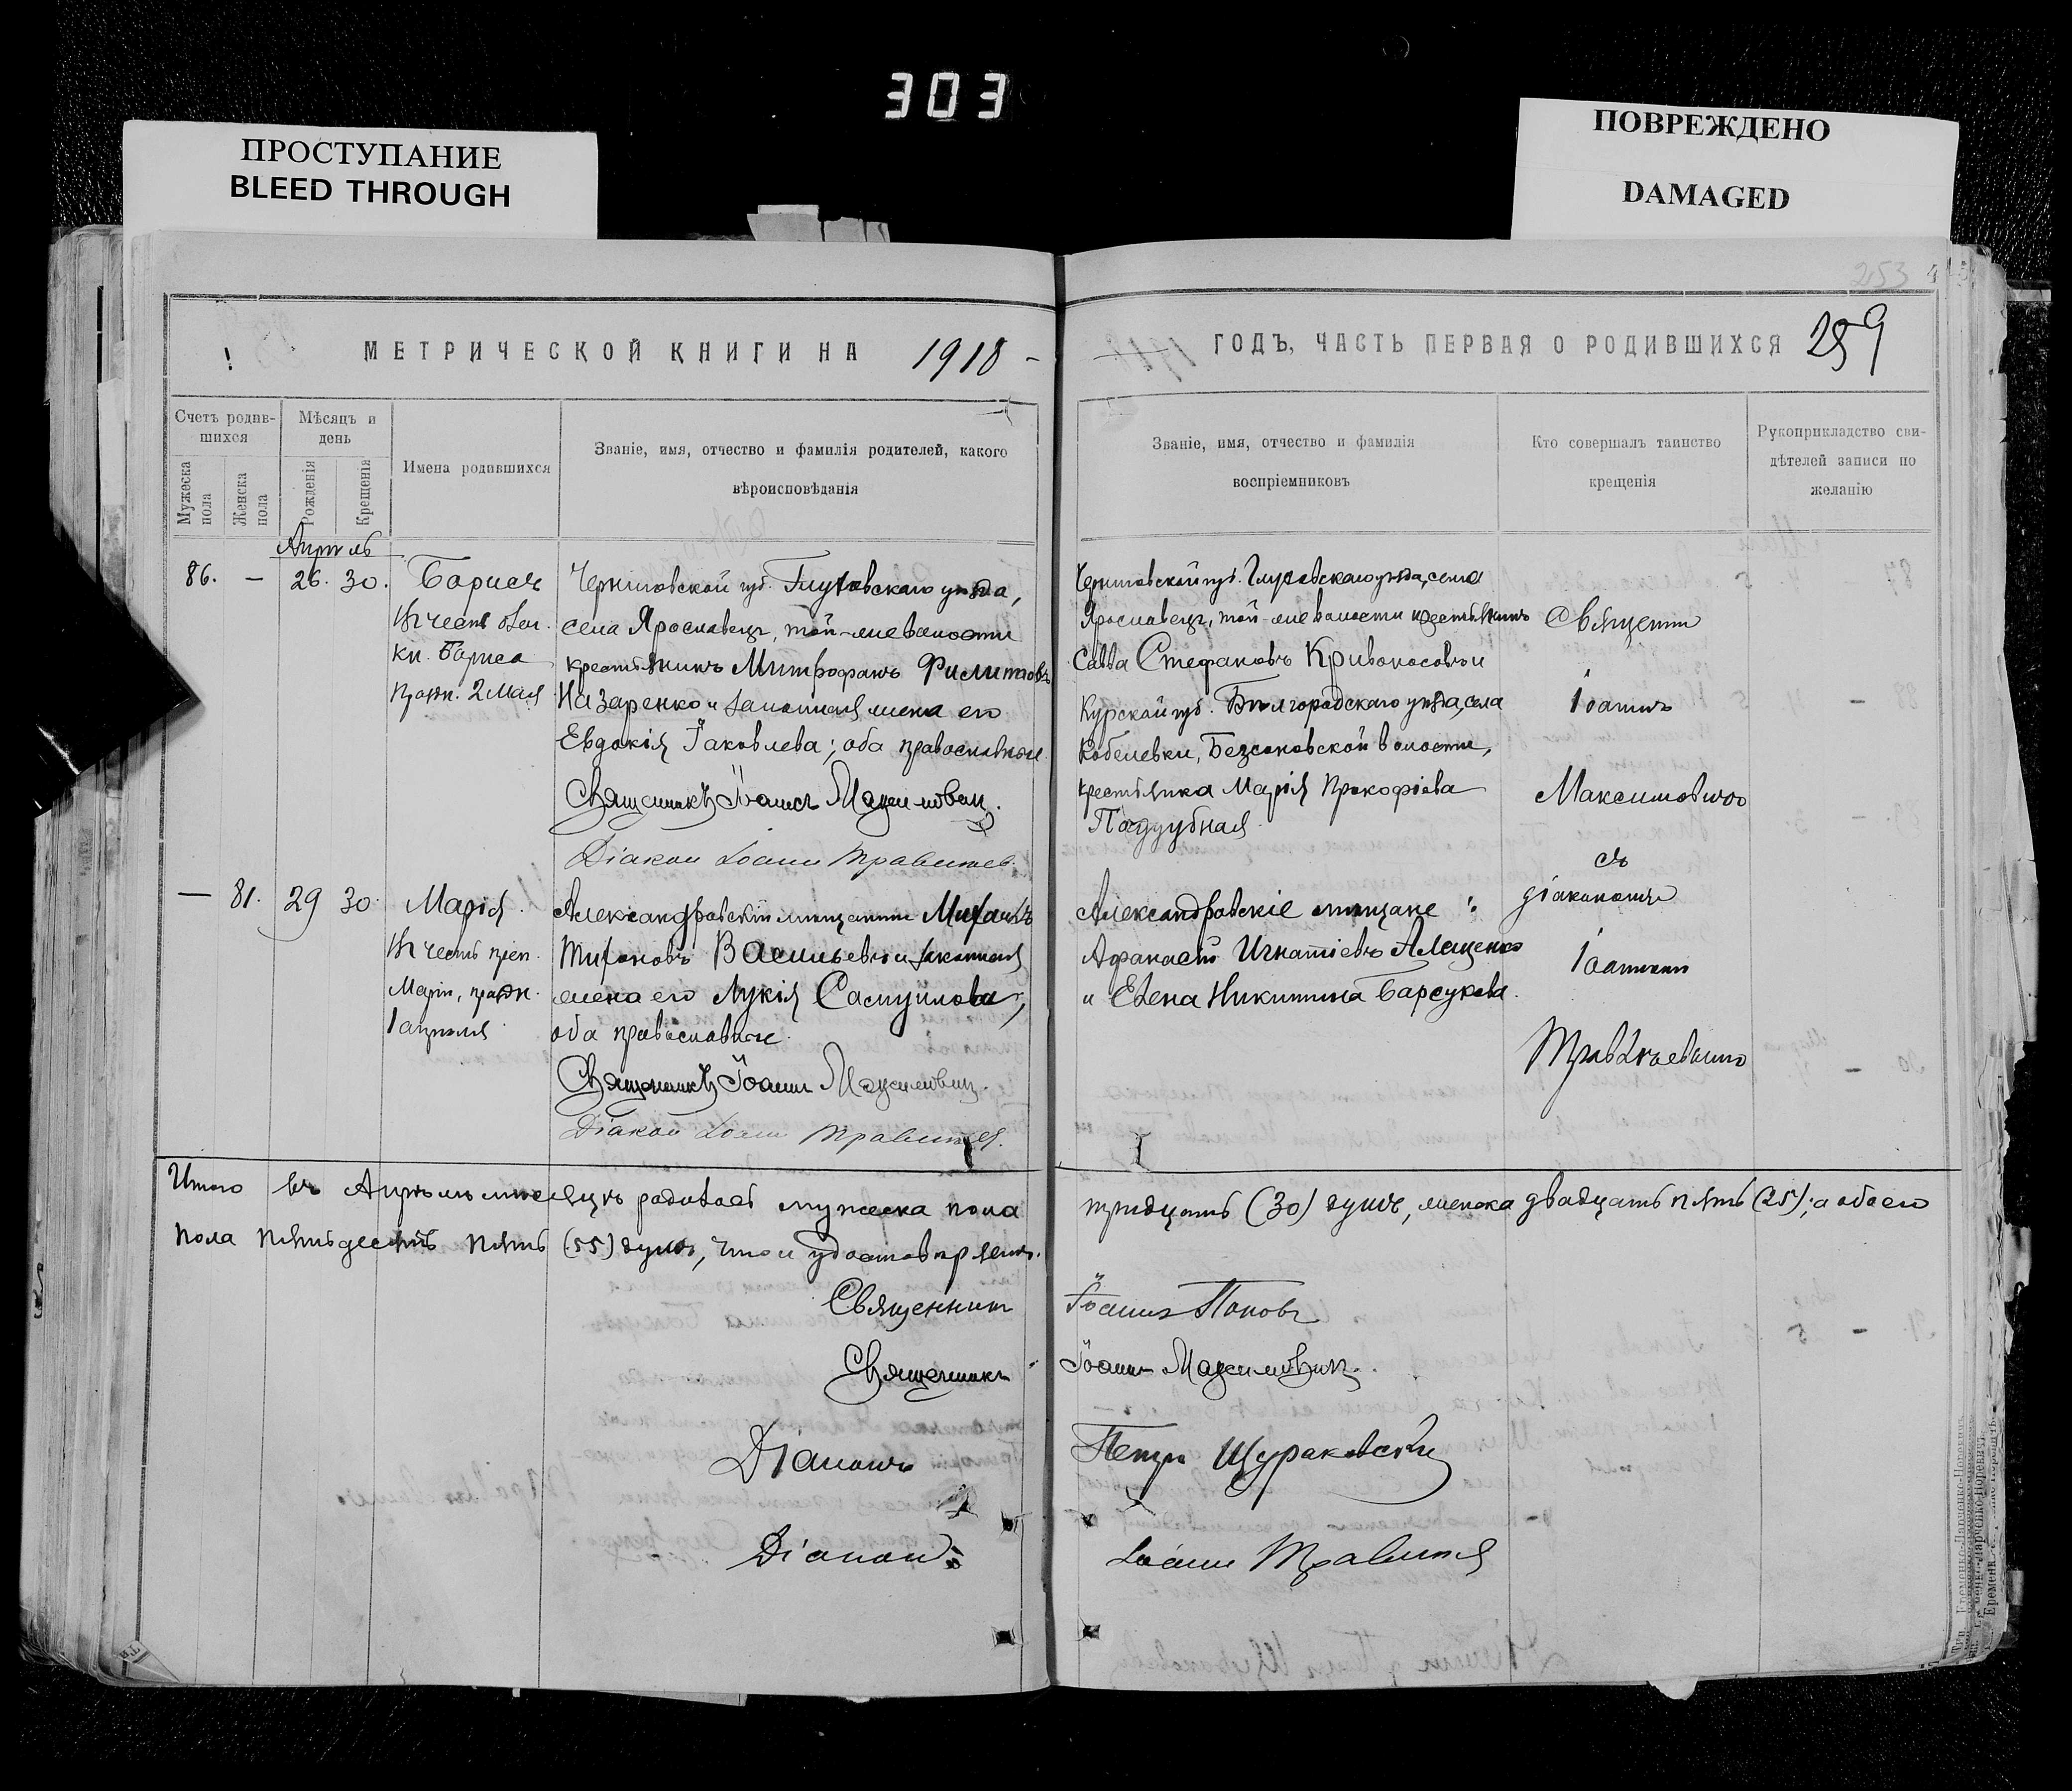 303
ПРОСТУПАНИЕ
BLEED THROUGH
ПОВРЕЖДЕНО
DAMAGED
253
МЕТРИЧЕСКОЙ КНИГИ НА 1918
Счетъ родив-
шихся
Мужеска пола
Женска пола
Мѣсяцъ и
день
Рожденія
Крещенія
Имена родившихся
Званіе, имя, отчество и фамилія родителей, какого
вѣроисповѣданія
Апрѣль
86. — 26. 30. Борисъ
Въ честь
кн. Бориса
празн. 2 Мая
Черниговской губ. Глуховскаго уѣзда,
села Ярославецъ, той-же волости
крестьянинъ Митрофанъ Филиповъ
Назаренко и законная жена его
Евдокія Іаковлева; оба православные
Священникъ Іоаннъ Максимович.
Діакон Іоанн Травинев.
— 81. 29 30. Марія.
Въ честь преп.
Маріи, празн.
1 апрѣля
Александровскій мѣщанинъ Михаилъ
Тихоновъ Васильевъ и законная
жена его Лукія Самуилова;
оба православные.
Священникъ Іоанн Максимович.
Діакон Іоанн
Итого въ Апрѣлѣ мѣсяцѣ родилось мужеска пола
пола пятьдесятъ пять (55) душъ, что и удостовѣряемъ.
Священник
Священникъ
Діаконъ
Діакон
ГОДЪ, ЧАСТЬ ПЕРВАЯ О РОДИВШИХСЯ 259
Званіе, имя, отчество и фамилія
воспріемниковъ
Кто совершалъ таинство
крещенія
Рукоприкладство сви-
дѣтелей записи по
желанію
Черниговской губ. Глуховскаго уѣзда, села
Ярославецъ, той-же волости крестьянинъ
Савва Стефановъ Кривоносовъ и
Курской губ. Бѣлгородскаго уѣзда, села
Кобелевки, Безсоновской волости,
крестьянка Марія Прокофіева
Поддубная.
Александровскіе мѣщане:
Афанасій Игнатіевъ Алещенко
и Елена Никитина Барсукова.
Священник
Іоаннъ
Максимовичъ
съ
діакономъ
Іоанномъ
тридцать (30) душъ, женска двадцать пять (25); а обоего
Іоаннъ Поповъ
Іоаннъ Максимович.
Петръ Щураковскій
Іоанн